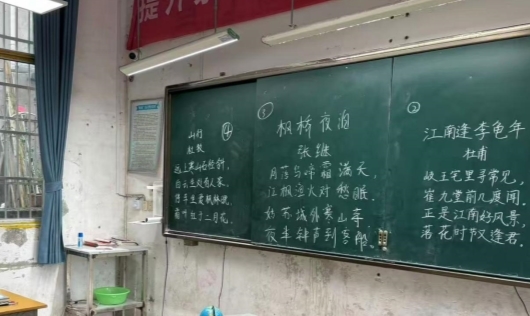 提升
山行
④
杜牧
远上寒山石径斜,
白云生处有人家。
停车坐爱枫林晚,
霜叶红于二月花。
③
枫桥夜泊
张继
月落乌啼霜满天,
江枫渔火对愁眠。
姑苏城外寒山寺,
夜半钟声到客船。
②
江南逢李龟年
杜甫
岐王宅里寻常见,
崔九堂前几度闻.
正是江南好风景,
落花时节又逢君.